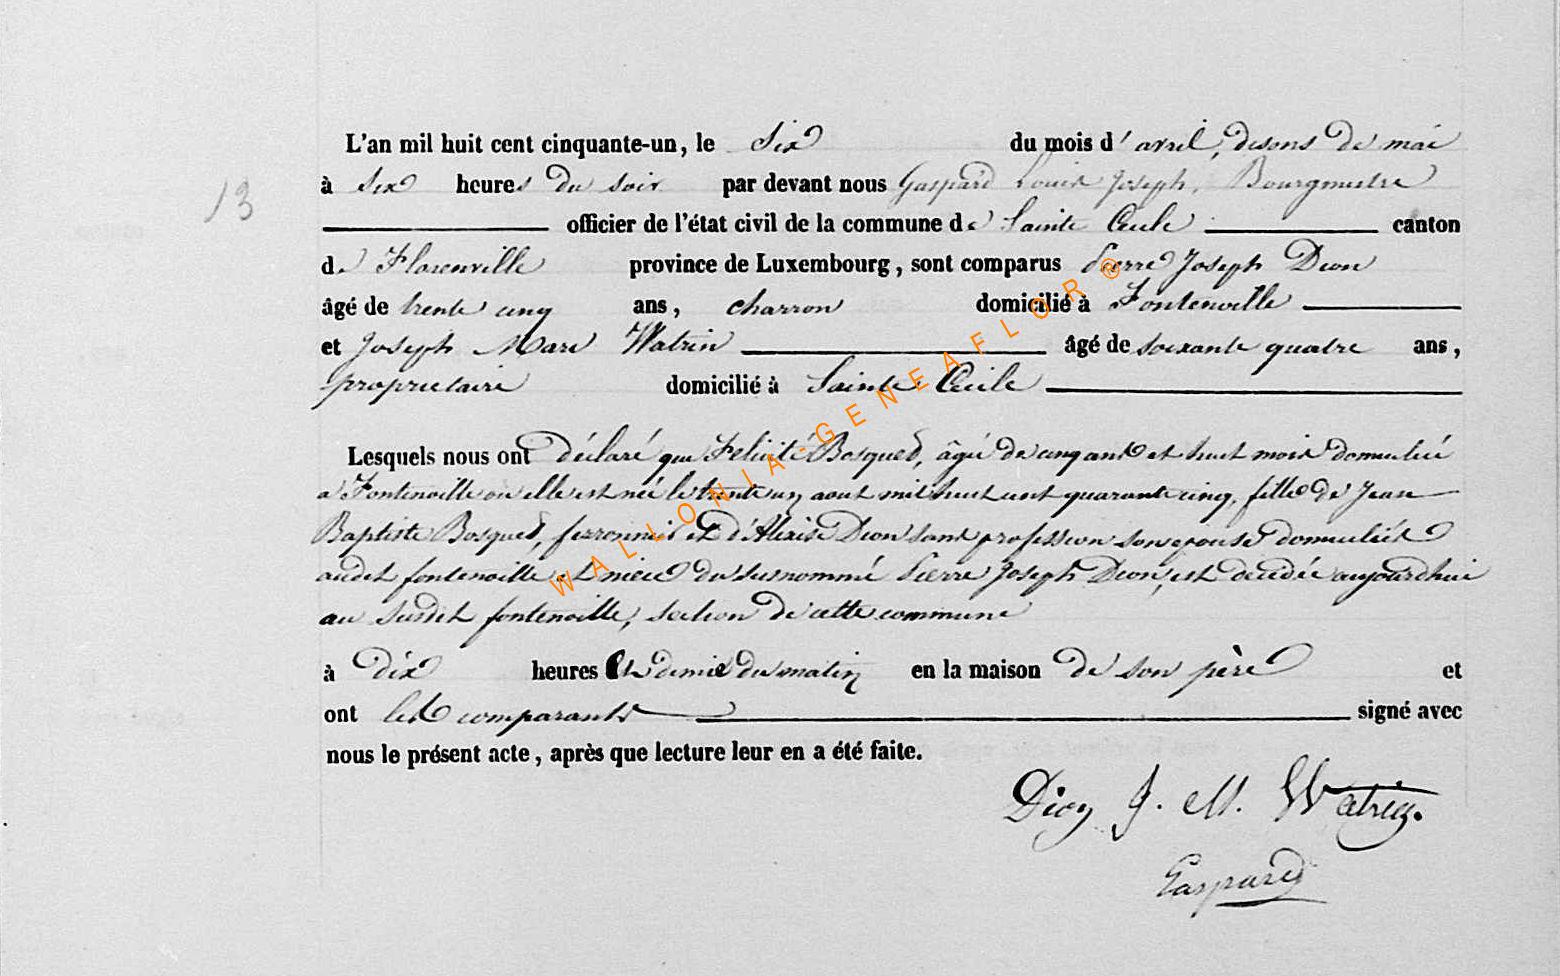 L'an mil huit cent cinquante-un, le Six du mois d' avril, disons de mai
13
à Six heures du soir par devant nous Gaspard Louis Joseph, Bourgmestre
officier de l'état civil de la commune de Sainte Cécile canton
de Florenville province de Luxembourg, sont comparus Pierre Joseph Dion
âgé de trente cinq ans, charron domicilié à Fontenoille
et Joseph Marie Watrin âgé de soixante quatre ans,
proprietaire domicilié à Sainte Cécile
Lesquels nous ont déclaré que Felicité Bosqued, âgée de cinq ans et huit mois domiciliée
a Fontenoille ou elle est née le trente un aout mil huit cent quarante cinq, fille de Jean
Baptiste Bosqued, ferronnier et d'Alexise Dion sans profession son epouse domiciliés
audit fontenoille et niece du surnommé Pierre Joseph Dion, est decedée aujourdhui
au susdit fontenoille, section de cette commune
à Dix heures et demie du matin en la maison de son père et
ont les comparants signé avec
nous le présent acte, après que lecture leur en a été faite.
Dion J. M. Watrin.
Gaspard
WALLONIA-GENEAFLOR®